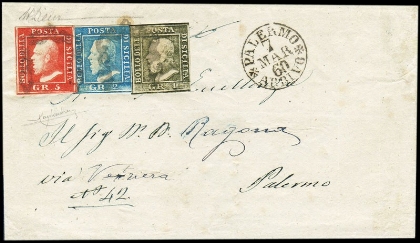 BOLLO DELLA POSTA DI SICILIA GR 5
BOLLO DELLA POSTA DI SICILIA GR 2
BOLLO DELLA POSTA DI SICILIA GR 1
PALERMO
7
MAR
60
Il Sig M. D. Ragona
via
№ 42
Palermo